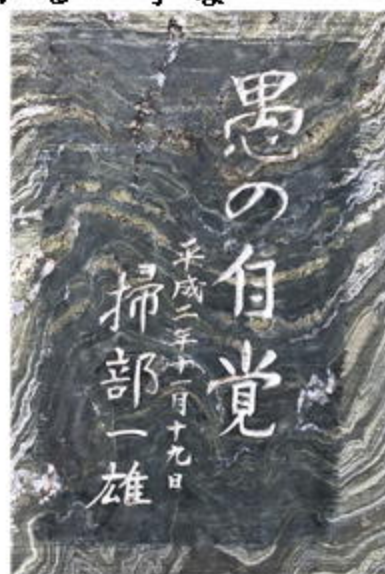 愚の自覚
平成二年十一月十九日
掃部一雄